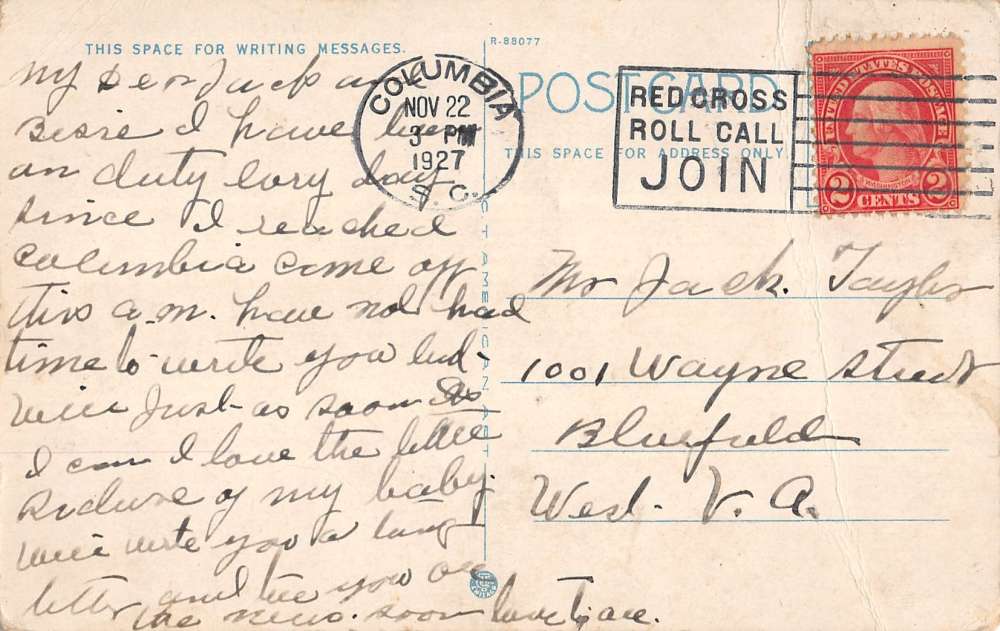 THIS SPACE FOR WRITING MESSAGES.
My Dear Jack and
Bessie I have been
on duty evry day
since I reached
Columbia come off
this a.m. have not had
time to write you but
will Just as soon as
I can I love the little
picture of my baby.
will write you a long
letter and tell you all
the news. soon love to all.
R-88077
POSTCARD
THIS SPACE FOR ADDRESS ONLY.
COLUMBIA
NOV 22
3 PM
1927
S. C.
RED CROSS
ROLL CALL
JOIN
UNITED STATES POSTAGE
WASHINGTON
2 CENTS 2
Mr Jack. Taylor
1001 Wayne Street
Bluefield
West. V. A.